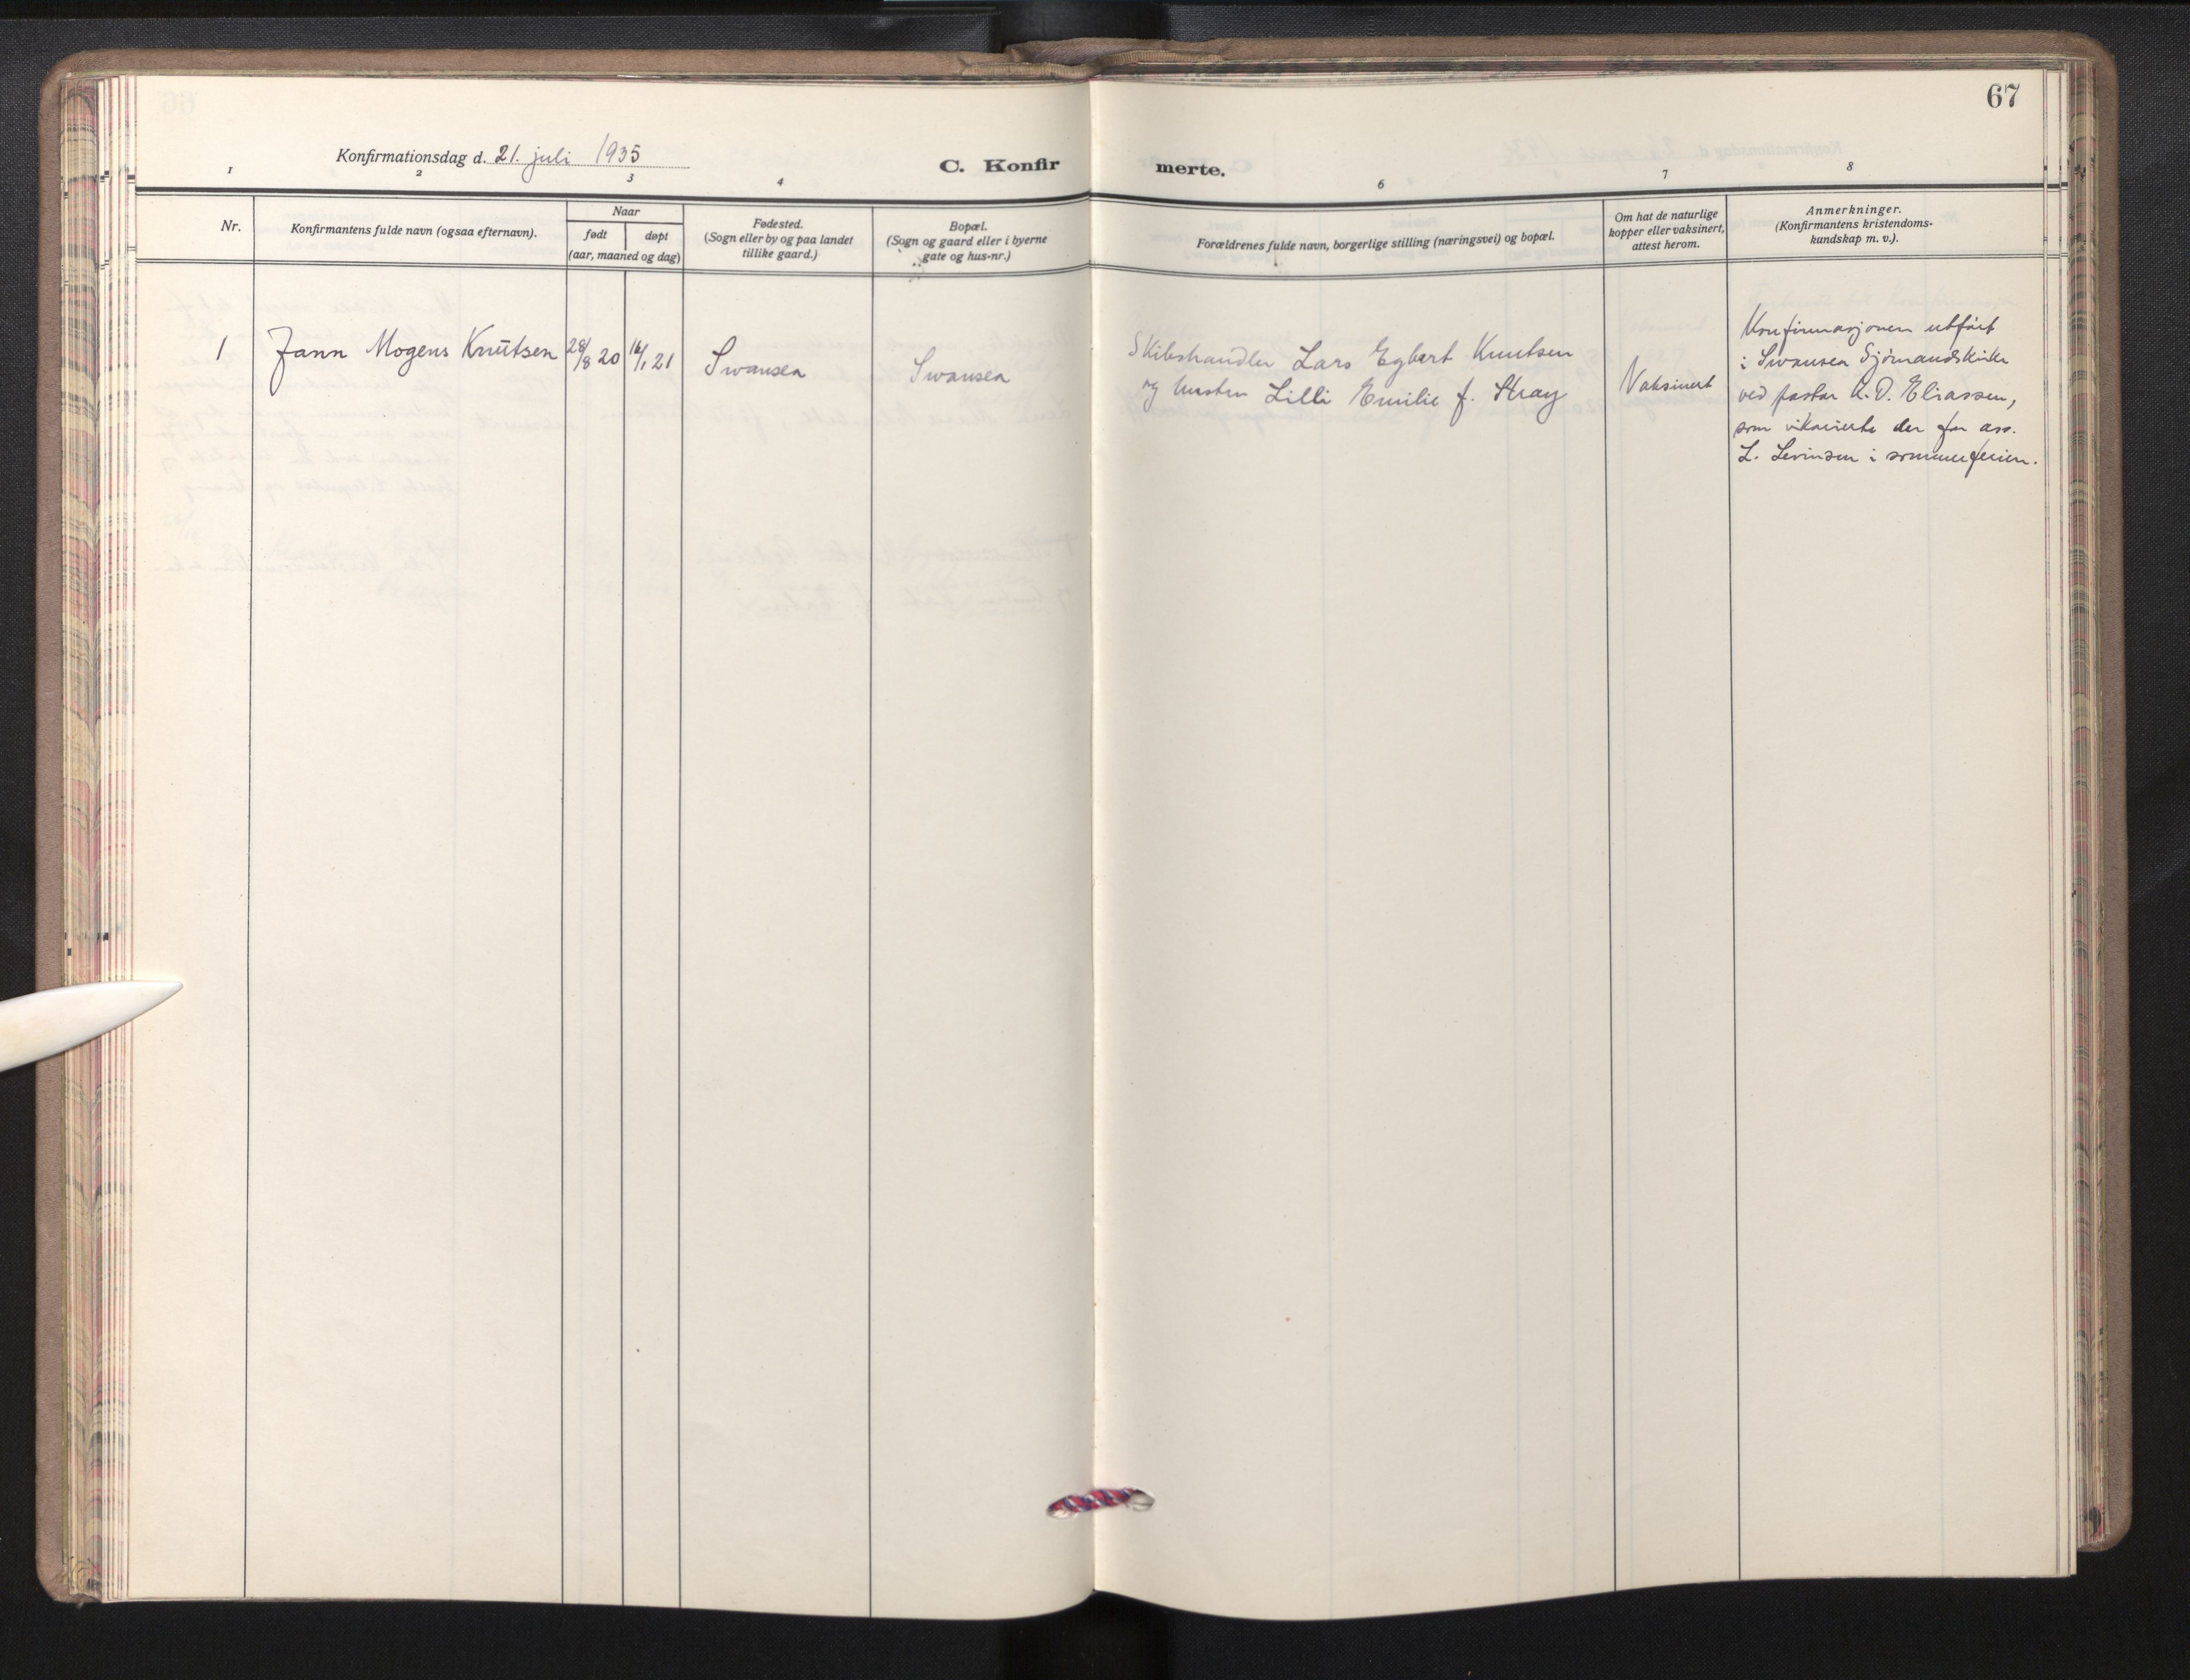 67
Konfirmationsdag d. 21. juli 1935
C. Konfirmerte.
1 2 3 4 6 7 8
Nr.
Konfirmantens fulde navn (ogsaa efternavn).
Naar
født døpt
(aar, maaned og dag)
Fødested.
(Sogn eller by og paa landet
tillike gaard.)
Bopæl.
(Sogn og gaard eller i byerne
gate og hus-nr.)
Forældrenes fulde navn, borgerlige stilling (næringsvei) og bopæl.
Om hat de naturlige
kopper eller vaksinert,
attest herom.
Anmerkninger.
(Konfirmantens kristendoms-
kundskap m. v.).
1
Jann Mogens Knutsen
28/8 20
16/1 21
Swansea
Swansea
Skibshandler Lars Egbert Knutsen
og hustru Lilli Emilie f. Stray
Vaksinert
Konfirmasjonen utført
i Swansea Sjømandskirke
ved pastor K. O. Eliassen,
som vikarierte der for ass.
L. Levinsen i sommerferien.